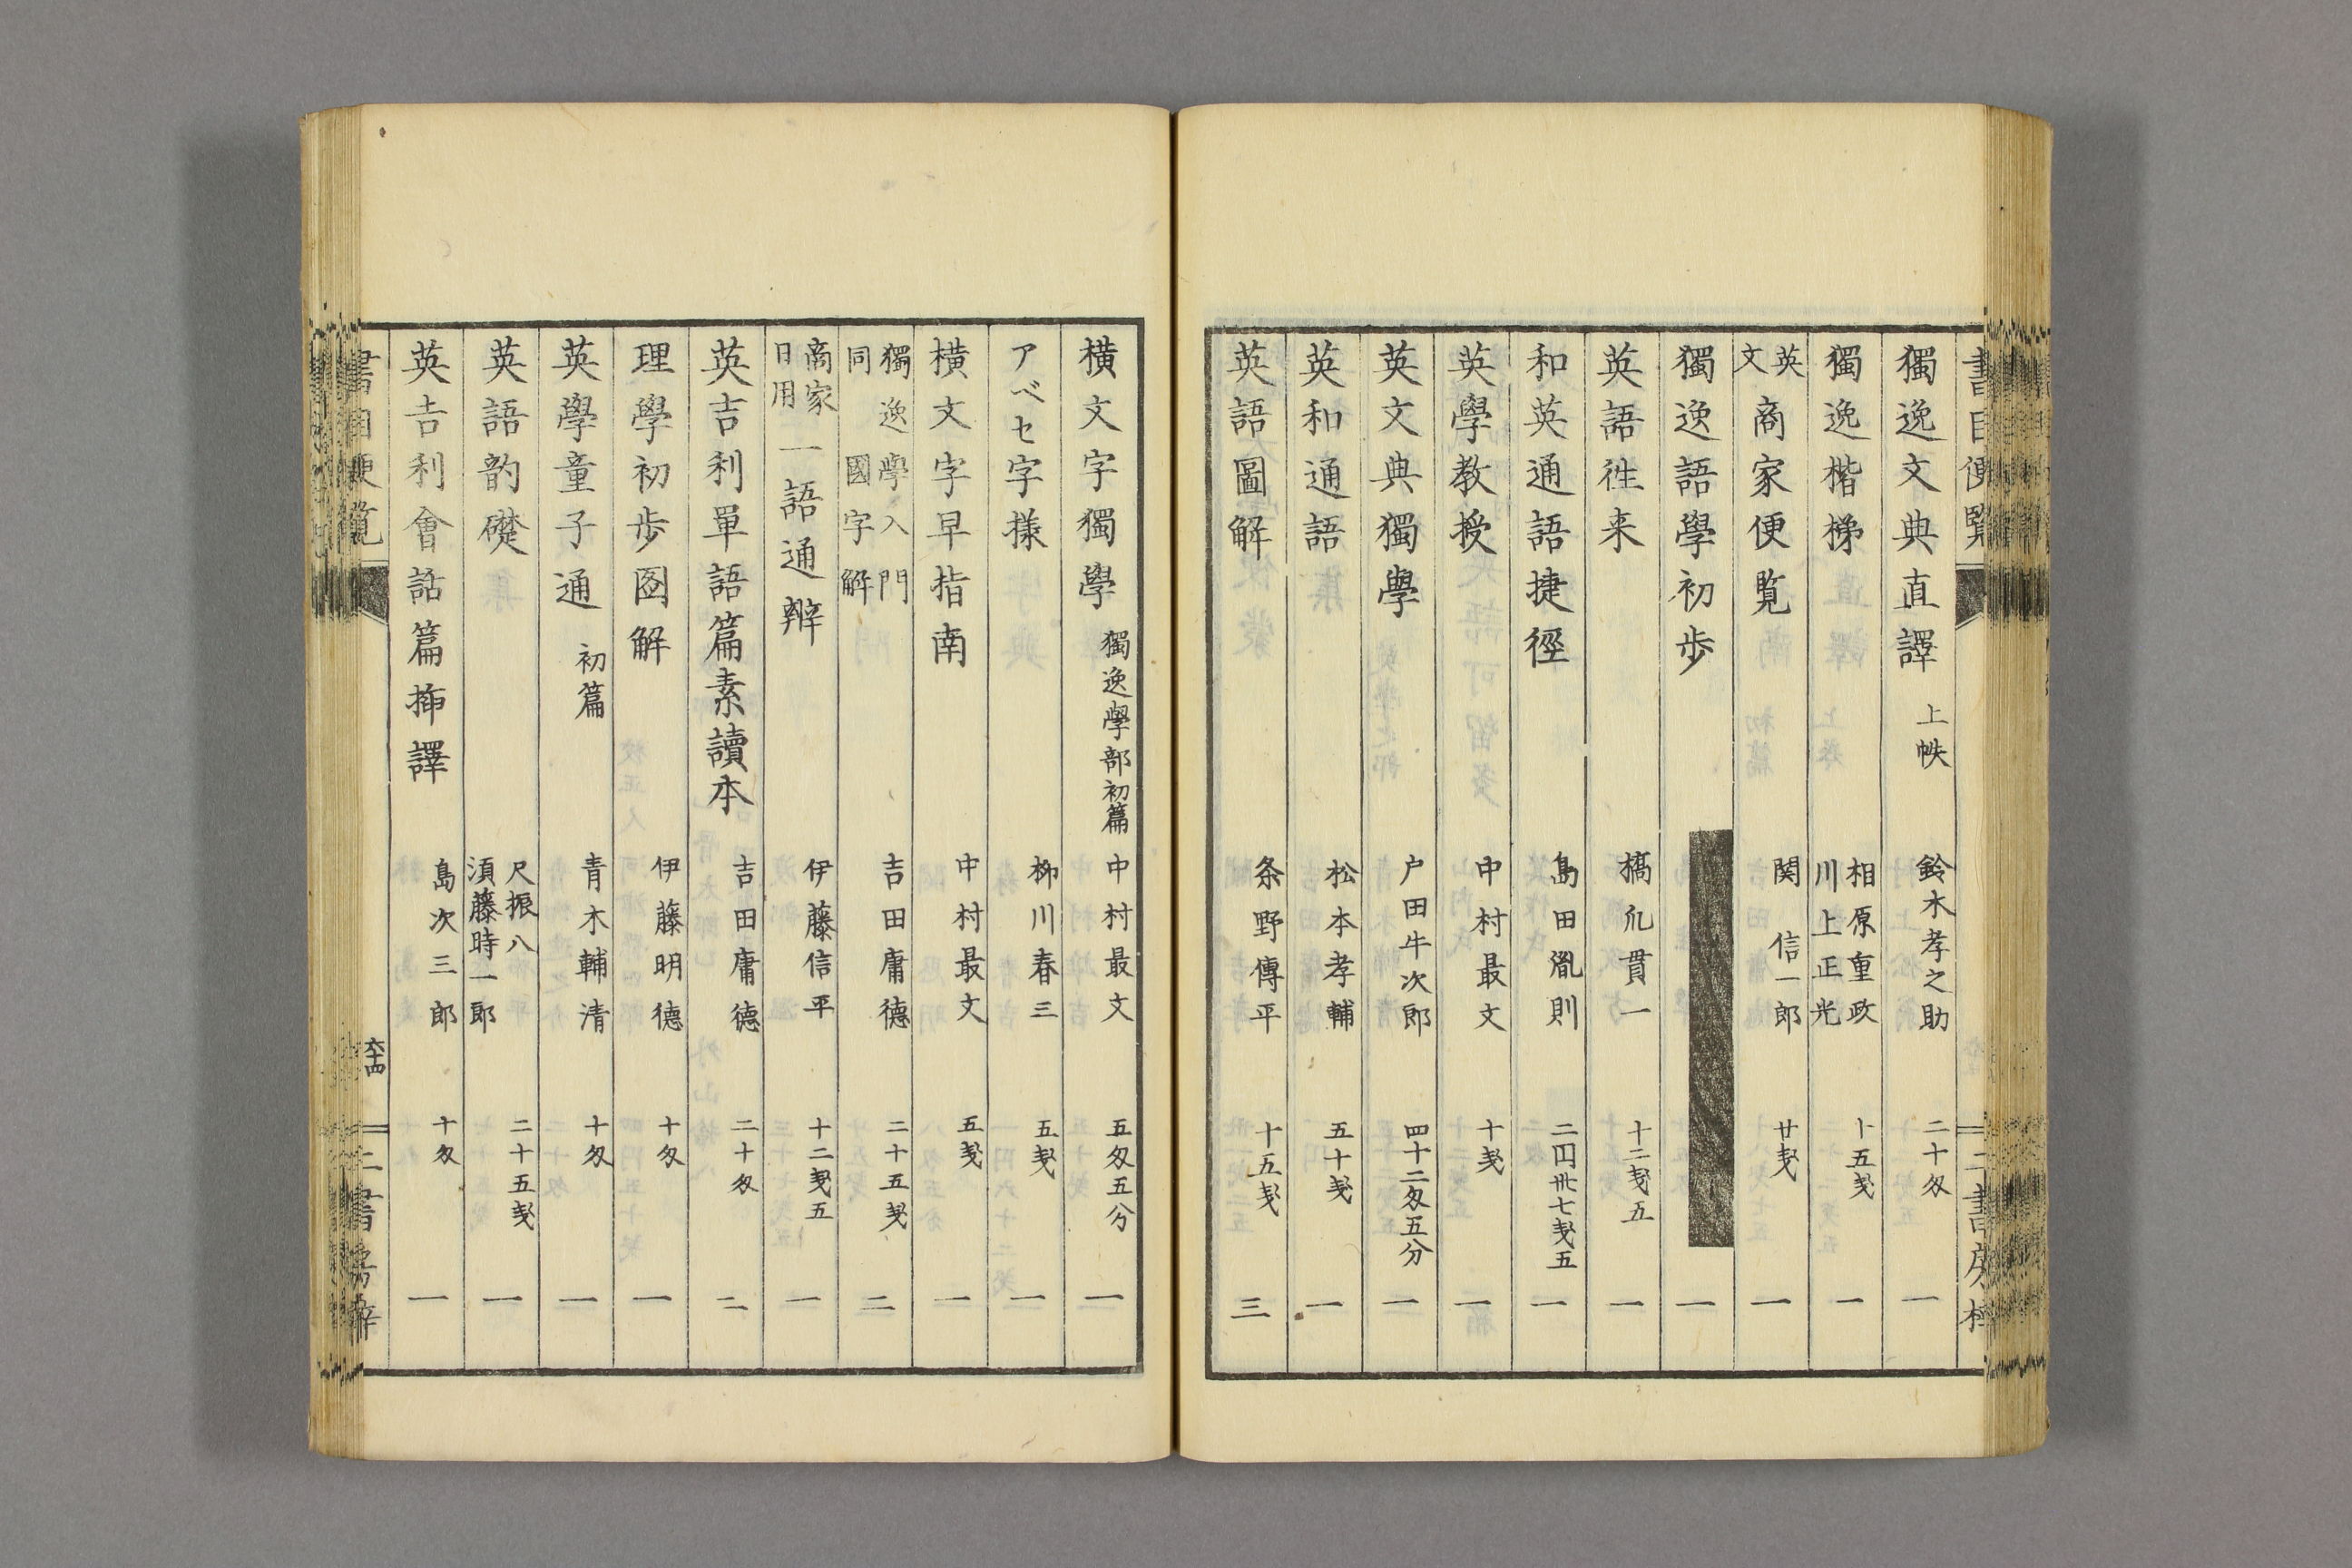 獨逸文典直譯 上帙 鈴木孝之助 二十匁 一
獨逸楷梯 相原重政 川上正光 十五戔 一
英文 商家便覧 関信一郎 廿戔 一
獨逸語學初歩 一
英語徃来 橋爪貫一 十二戔五 一
和英通語捷徑 島田胤則 二円卅七戔五 一
英學教授 中村最文 十戔 一
英文典獨學 戸田牛次郎 四十二匁五分 一
英和通語 松本孝輔 五十戔 一
英語圖解 条野傳平 十五戔 三
横文字獨學 獨逸學部初篇 中村最文 五匁五分 一
アベセ字様 柳川春三 五戔 一
横文字早指南 中村最文 五戔 一
獨逸學入門 同國字解 吉田庸德 二十五戔 二
商家日用 一語通辨 伊藤信平 十二戔五 一
英吉利單語篇素讀本 吉田庸德 二十匁 二
理學初歩図解 伊藤明德 十匁 一
英學童子通 初篇 青木輔清 十匁 一
英語韵礎 尺振八 須藤時一郎 二十五戔 一
英吉利會話篇挿譯 島次三郎 十匁 一
六十四